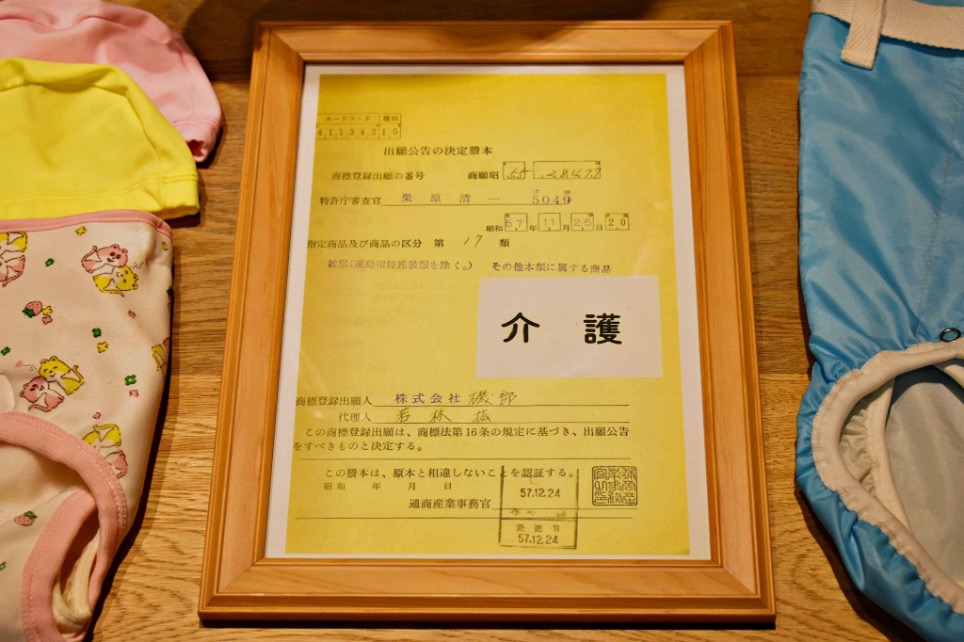 カードコード 種別
4113421 5
出願公告の決定謄本
商標登録出願の番号 商願昭
特許庁審査官 栗原清一 5049
昭和 57年 11月 25日 20
指定商品及び商品の区分 第 17 類
被服(運動用特殊被服を除く。) その他本類に属する商品
介護
商標登録出願人 株式会社 磯部
代理人 若林 拡
この商標登録出願は、商標法第16条の規定に基づき、出願公告
をすべきものと決定する。
この謄本は、原本と相違しないことを認証する。
昭和 年 月 日
57.12.24
通商産業事務官
発送日
57.12.24